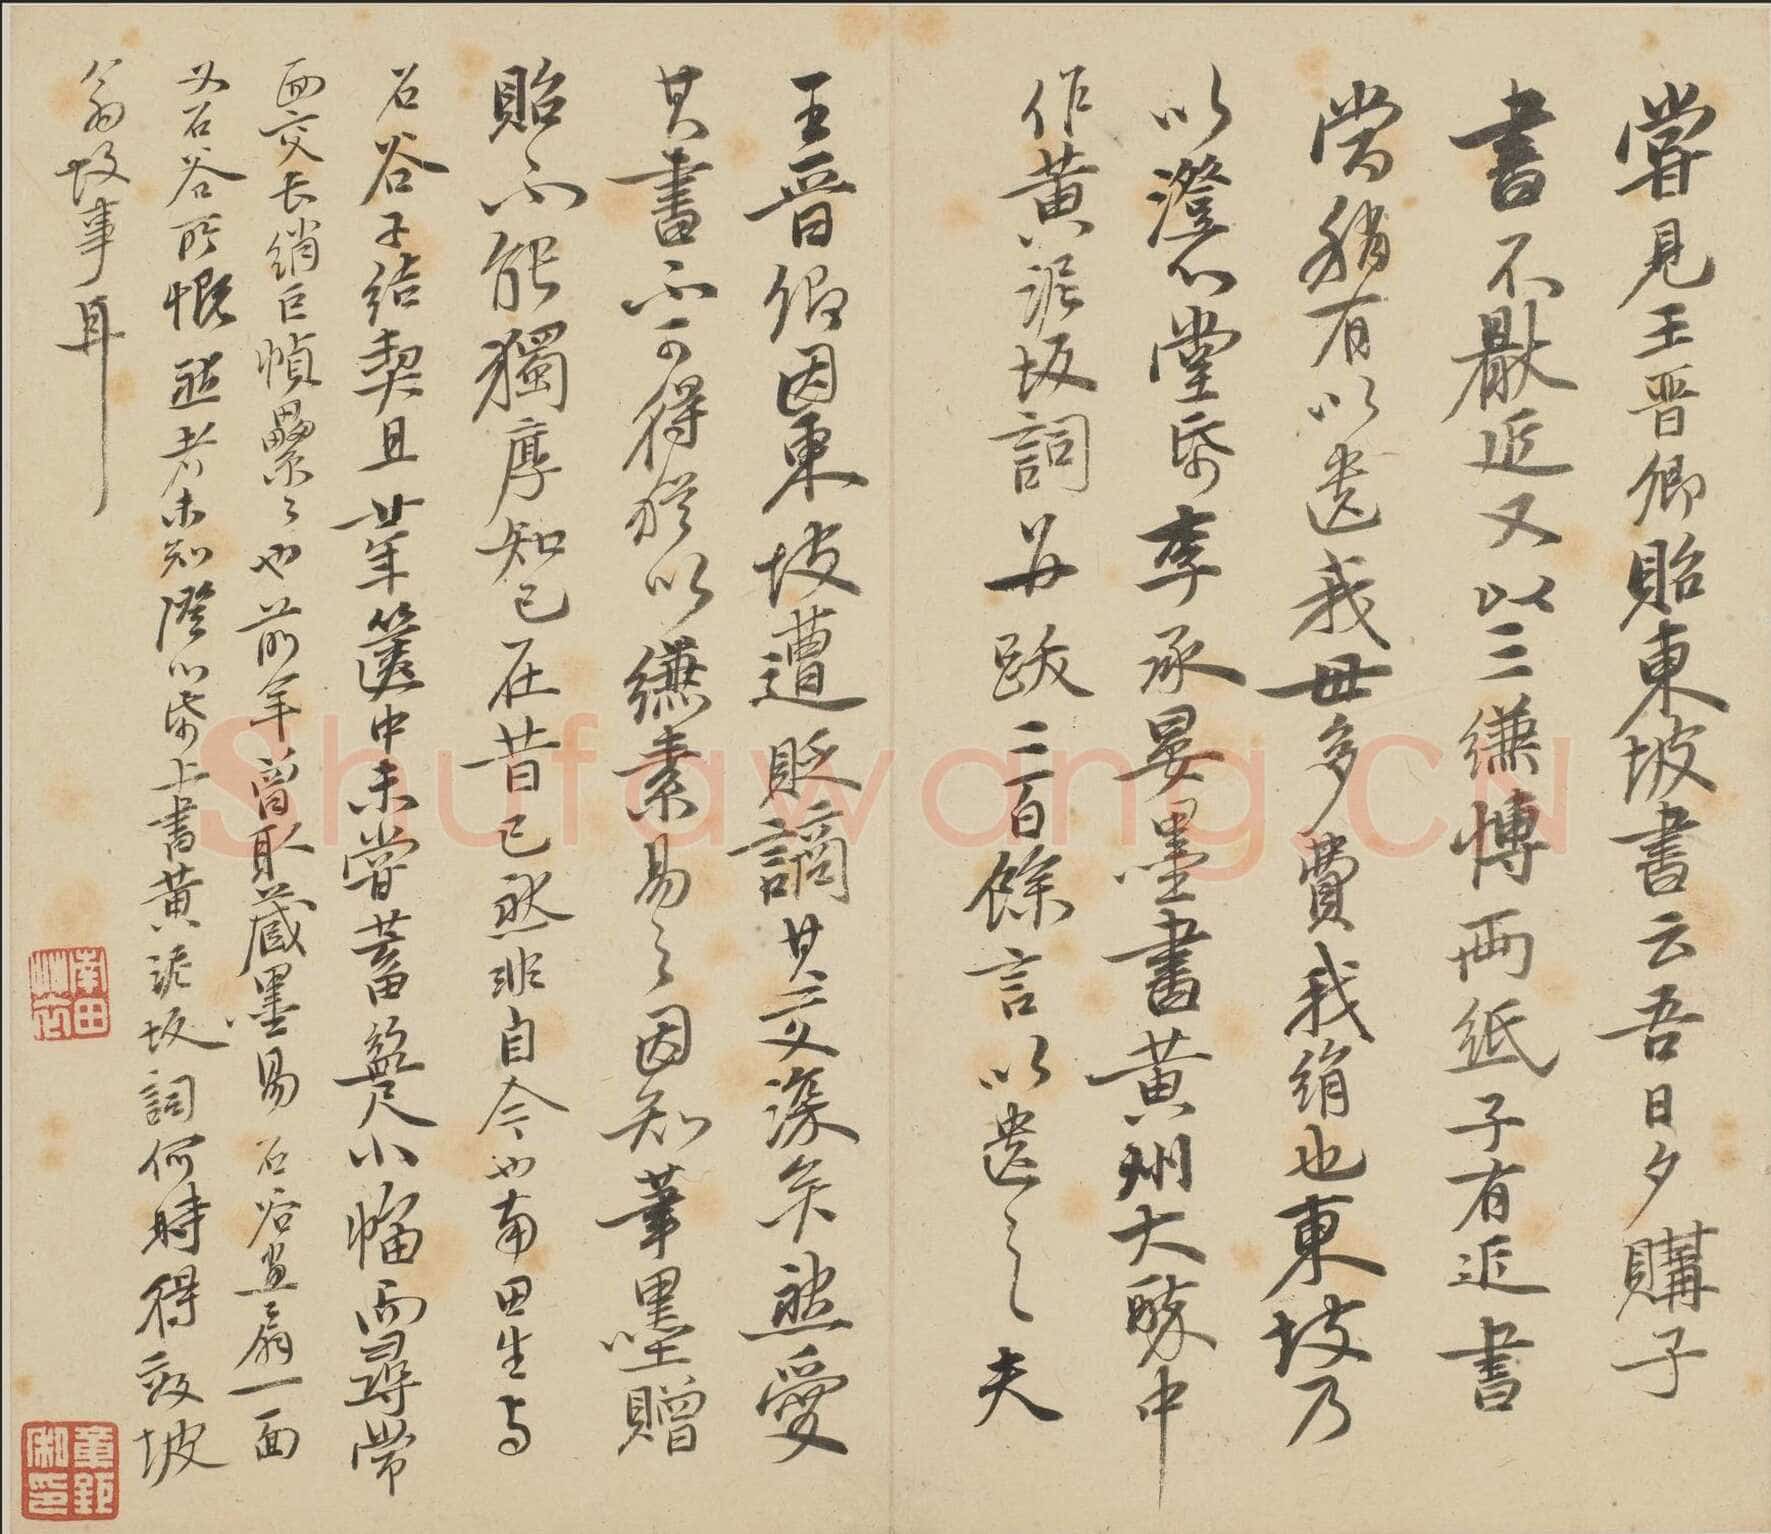 嘗見王晉卿貽東坡書云吾日夕購子
書不厭近又以三縑博兩紙子有近書
當稍有以遺我毋多費我絹也東坡乃
以澄心堂帋李承晏墨書黃州大醉中
作黃泥坂詞并跋二百餘言以遺之夫
王晉卿因東坡遭貶謫其交深矣然愛
其書不可得猶以縑素易之因知筆墨贈
貽不能獨厚知己在昔已然非自今也南田生与
石谷子結契且廿年篋中未嘗蓄盈尺小幅而尋常
面交長綃巨幀纍纍也前年曾取藏墨易石谷畫扇一面
又石谷所慨然者未知澄心帋上書黃泥坂詞何時得效坡
翁故事耳
南田
董
Shufawang.CN